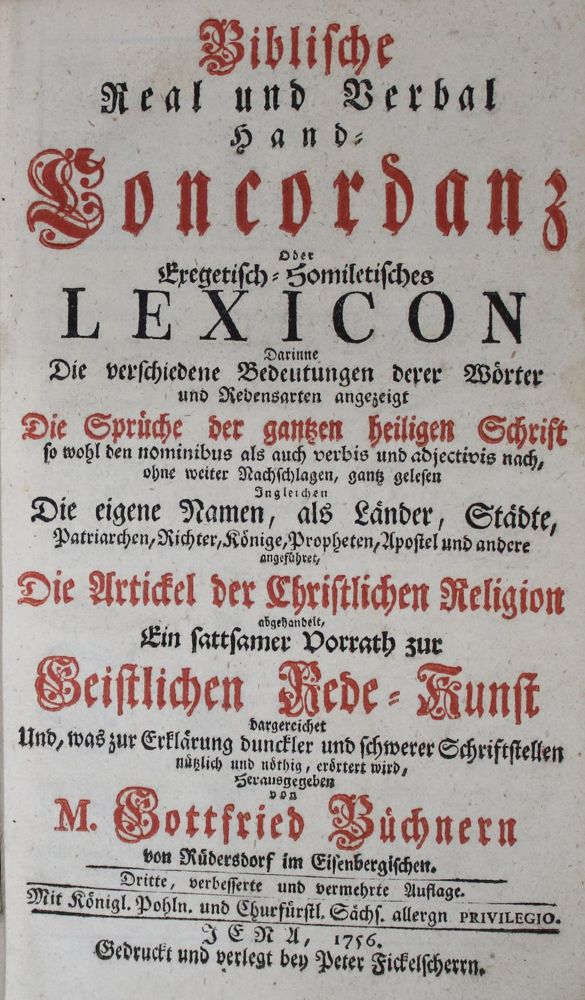 Biblische
Real und Verbal
Hand-
Concordanz
Oder
Exegetisch-Homiletisches
LEXICON
Darinne
Die verschiedene Bedeutungen derer Wörter
und Redensarten angezeigt
Die Sprüche der gantzen heiligen Schrift
so wohl den nominibus als auch verbis und adjectivis nach,
ohne weiter Nachschlagen, gantz gelesen
Ingleichen
Die eigene Namen, als Länder, Städte,
Patriarchen, Richter, Könige, Propheten, Apostel und andere
angeführet,
Die Artickel der Christlichen Religion
abgehandelt,
Ein sattsamer Vorrath zur
Geistlichen Rede-Kunst
dargereichet
Und, was zur Erklärung dunckler und schwerer Schriftstellen
nützlich und nöthig, erörtert wird,
Herausgegeben
von
M. Gottfried Büchnern
von Rüdersdorf im Eisenbergischen.
Dritte, verbesserte und vermehrte Auflage.
Mit Königl. Pohln. und Churfürstl. Sächs. allergn PRIVILEGIO.
JENA, 1756.
Gedruckt und verlegt bey Peter Fickelscherrn.